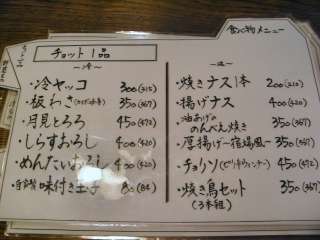 食べ物メニュー
チョット1品
〜冷〜
・冷ヤッコ 300(315)
・板わさ 350(367)
・月見とろろ 450(472)
・しらすおろし 400(420)
・めんたいおろし 400(420)
・自家製味付き玉子 80(84)
〜温〜
・焼きナス1本 200(210)
・揚げナス 400(420)
・油あげののんべえ焼き 350(367)
・厚揚げ一宿場風 350(367)
・チョリソ(ピリ辛ウィンナー) 450(472)
・焼き鳥セット 350(367)
(3本組)